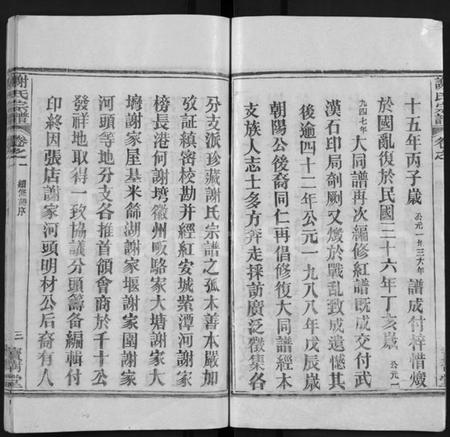 十五年丙子歲公元一九三六年譜成付梓惜燬
於國亂復於民國三十六年丁亥歲公元一
九四七年大同譜再次編修紅譜既成交付武
漢石印局剞劂又燬於戰亂致成遺憾其
後逾四十二年公元一九八八年戊辰歲
朝陽公後裔同仁再倡修復大同譜經各
支族人志士多方奔走採訪廣泛徵集各
謝氏宗譜
卷之一
續修譜序
三
寶樹堂
分支派珍藏謝氏宗譜之孤本善本嚴加
攷証縝密校勘并經紅安城紫潭河謝家
榜長港何謝塆徽州畈駱家大塘謝家大
塆謝家屋基米餘湖謝家堰謝家園謝家
河頭等地分支各推首領會商於千十公
發祥地取得一致協議分頭籌備編輯付
印終因張店謝家河頭明材公后裔有人